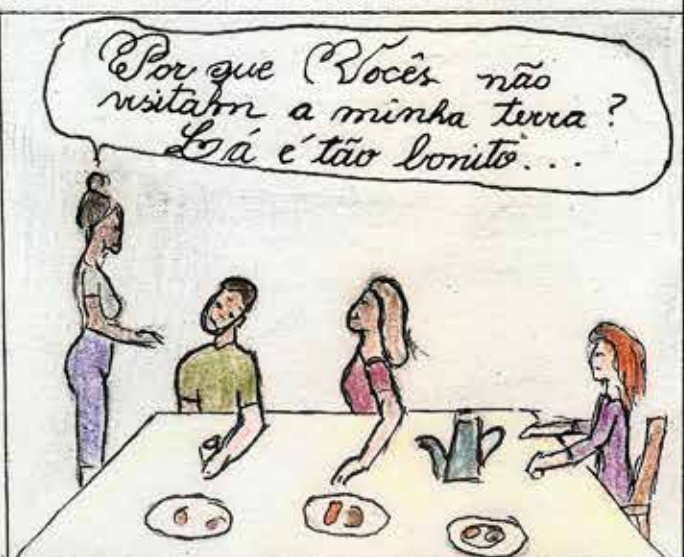 Por que Vocês não
visitam a minha terra?
Lá é tão bonito...